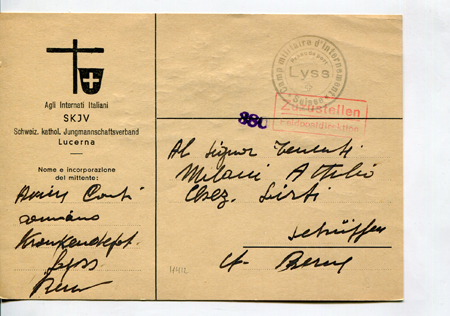 Agli Internati Italiani
SKJV
Schweiz. kathol. Jungmannschaftsverband
Lucerna
Nome e incorporazione
del mittente:
Conti
romano
Krankendepot.
Lyss
Camp militaire d'internement
Lyss
Suisse
Zuzustellen
Feldpostdirektion
380
Al Signor Tenenti
Milani Attilio
Chez. Sirti
Schüpfen
Ct. Berne
4412